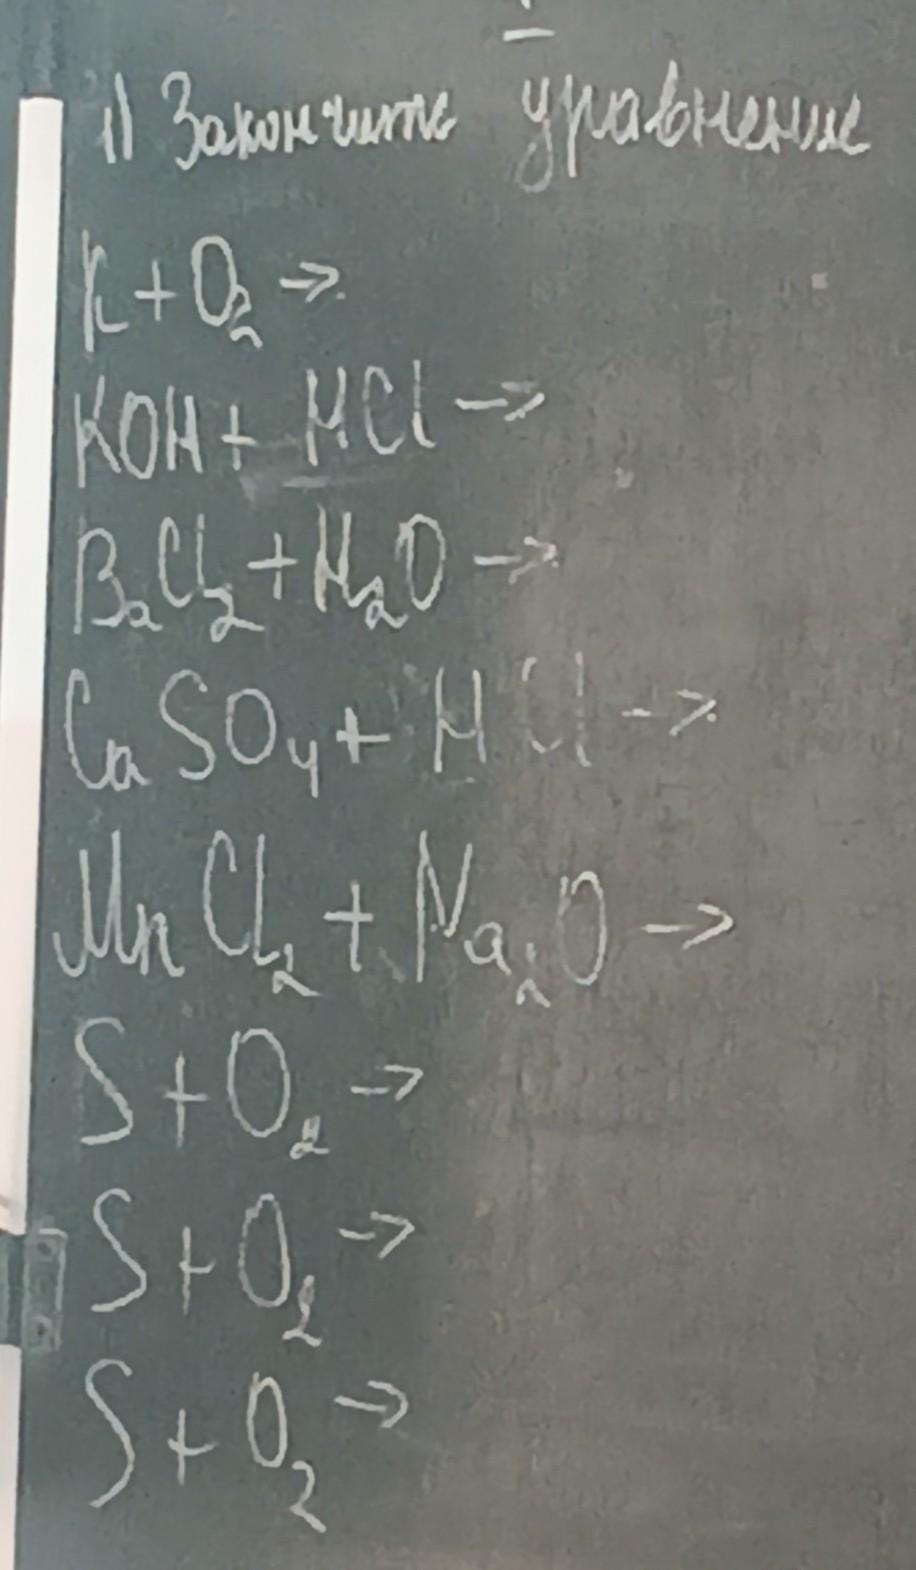 1) Закончить уравнение
K + O₂ →
KOH + HCl →
BaCl₂ + H₂O →
CaSO₄ + HCl →
MnCl₂ + Na₂O →
S + O₂ →
S + O₂ →
S + O₂ →